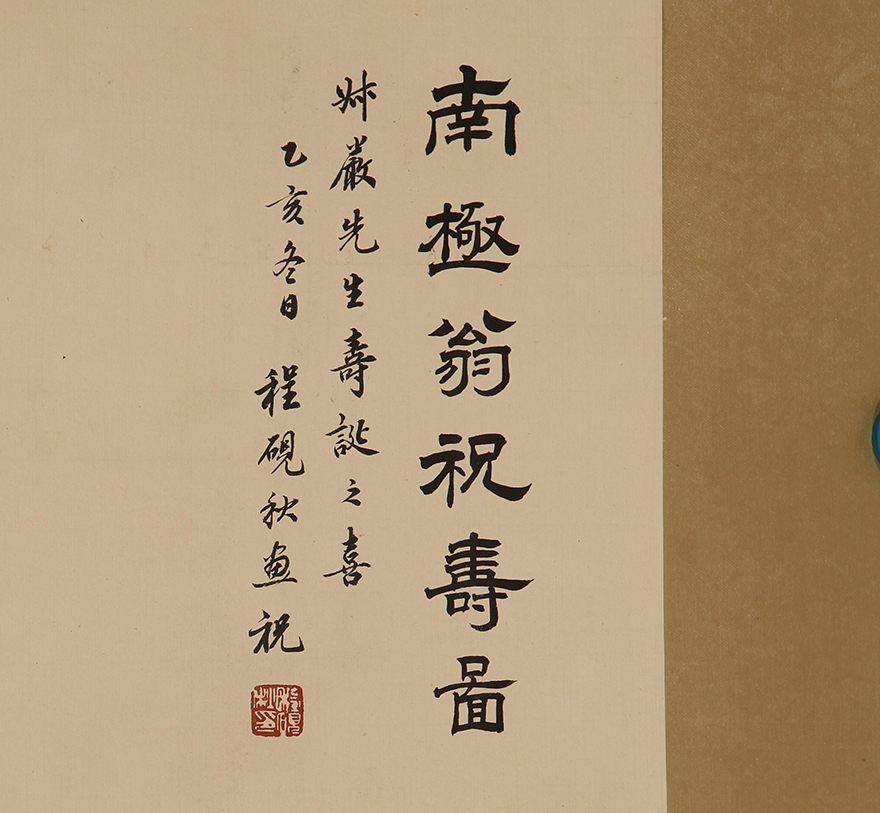 南極翁祝壽圖
叔巖先生壽誕之喜
乙亥冬日 程硯秋画祝
程硯秋印